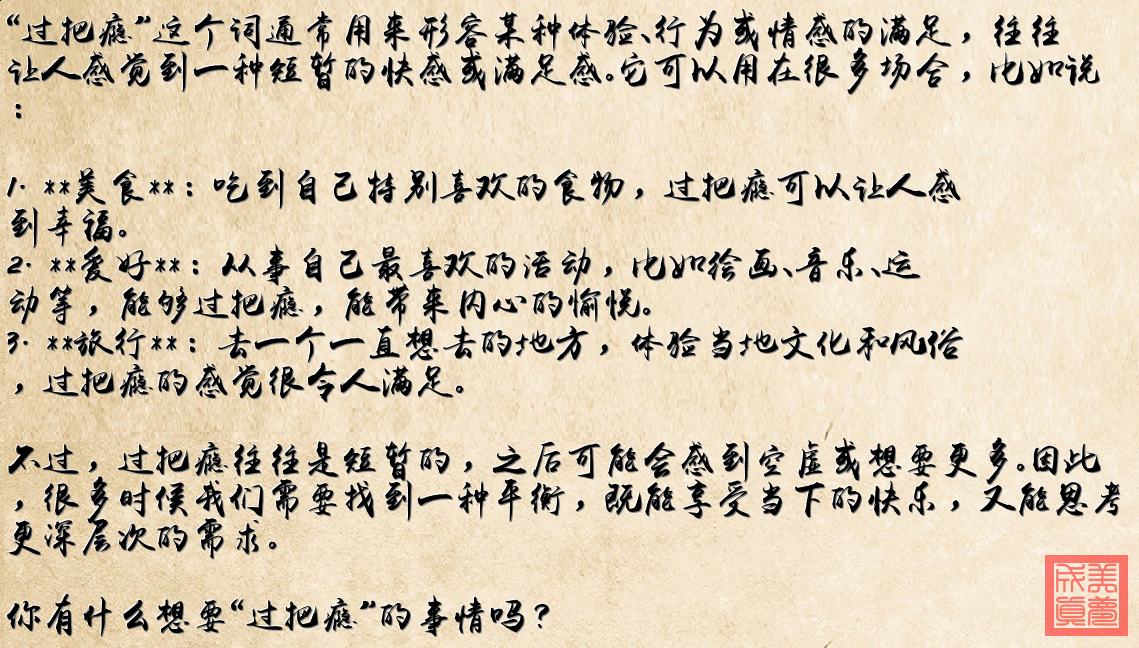 “过把瘾”这个词通常用来形容某种体验、行为或情感的满足，往往
让人感觉到一种短暂的快感或满足感。它可以用在很多场合，比如说
：
1. **美食**：吃到自己特别喜欢的食物，过把瘾可以让人感
到幸福。
2. **爱好**：从事自己最喜欢的活动，比如绘画、音乐、运
动等，能够过把瘾，能带来内心的愉悦。
3. **旅行**：去一个一直想去的地方，体验当地文化和风俗
，过把瘾的感觉很令人满足。
不过，过把瘾往往是短暂的，之后可能会感到空虚或想要更多。因此
，很多时候我们需要找到一种平衡，既能享受当下的快乐，又能思考
更深层次的需求。
你有什么想要“过把瘾”的事情吗？
美夢
成真